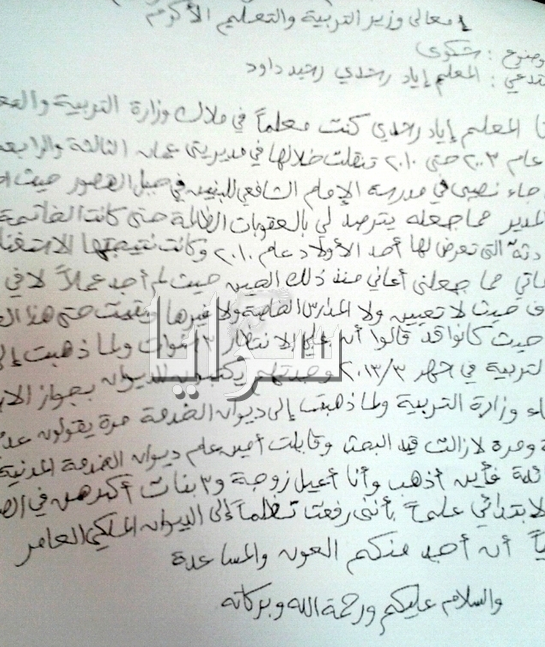 معالي وزير التربية والتعليم الأكرم
وضوع : شكوى
تدعي : المعلم إياد رشدي رشيد داود
نا المعلم إياد رشدي كنت معلماً في ملاك وزارة التربية والتع
عام ٢٠٠٣ حتى ٢٠١٠ تنقلت خلالها في مديريتي عمان الثالثة والرابعة
جاء نصيبي في مدرسة الإمام الشافعي للبنين في جبل القصور حيث ا
لمدير مما جعله يترصد لي بالعقوبات الظالمة حتى كانت الخاتمة
دثة التي تعرض لها أحد الأولاد عام ٢٠١٠ وكانت نتيجتها الاستغنا
ماتي مما جعلني أعاني منذ ذلك الحين حيث لم أجد عملاً لا في
ف حيث لا تعيين ولا المدارس الخاصة ولا غيرها وبقيت حتى هذا الع
حيث كانوا قد قالوا أن علي الانتظار ٣ سنوات ولما ذهبت إلى
التربية في شهر ٢٠١٣/٣ وجدتهم يكتبون للديوان بجواز الا
اء وزارة التربية ولما ذهبت إلى ديوان الخدمة مرة يقولون عد
ة ومرة لا زالت قيد البحث وقابلت أمين عام ديوان الخدمة المدنية
ئدة فأين أذهب وأنا أعيل زوجة و٣ بنات أكبرهن في الص
لابتدائي علماً بأنني رفعت تظلماً إلى الديوان الملكي العامر
ياً أن أجد منكم العون والمساعدة
والسلام عليكم ورحمة الله وبركاته
سرايا